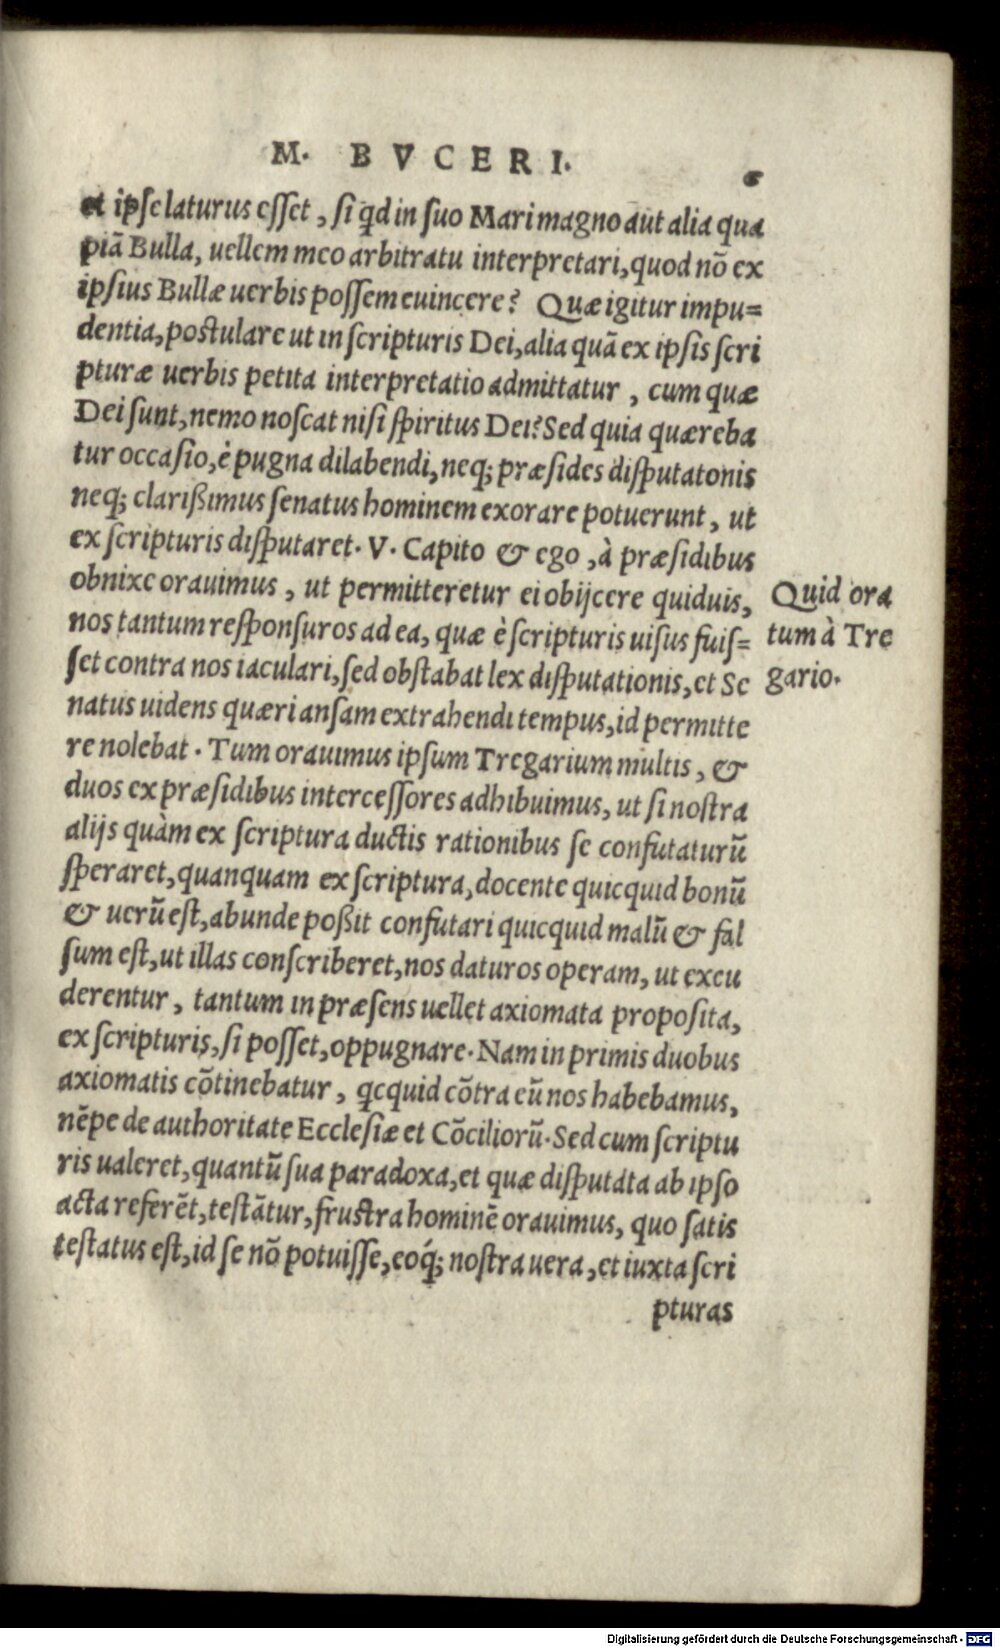 M. BVCERI.
6
et ipse laturus esset, si qd in suo Mari magno aut alia qua
piã Bulla, uellem meo arbitratu interpretari, quod nõ ex
ipsius Bullæ uerbis possem euincere? Quæ igitur impu=
dentia, postulare ut in scripturis Dei, alia quã ex ipsis scri
pturæ uerbis petita interpretatio admittatur, cum quæ
Dei sunt, nemo noscat nisi spiritus Dei? Sed quia quæreba
tur occasio, è pugna dilabendi, neq; præsides disputatonis
neq; clarißimus senatus hominem exorare potuerunt, ut
ex scripturis disputaret. V. Capito & ego, à præsidibus
obnixe orauimus, ut permitteretur ei obijcere quiduis,
nos tantum responsuros ad ea, quæ è scripturis uisus fuis=
set contra nos iaculari, sed obstabat lex disputationis, et Se
natus uidens quæri ansam extrahendi tempus, id permitte
re nolebat. Tum orauimus ipsum Tregarium multis, &
duos ex præsidibus intercessores adhibuimus, ut si nostra
alijs quàm ex scriptura ductis rationibus se confutaturũ
speraret, quanquam ex scriptura, docente quicquid bonũ
& uerũ est, abunde poßit confutari quicquid malũ & fal
sum est, ut illas conscriberet, nos daturos operam, ut excu
derentur, tantum in præsens uellet axiomata proposita,
ex scripturis, si posset, oppugnare. Nam in primis duobus
axiomatis cõtinebatur, qcquid cõtra eũ nos habebamus,
nẽpe de authoritate Ecclesiæ et Cõciliorũ. Sed cum scriptu
ris ualeret, quantũ sua paradoxa, et quæ disputata ab ipso
acta referẽt, testãtur, frustra hominẽ orauimus, quo satis
testatus est, id se nõ potuisse, eoq́; nostra uera, et iuxta scri
pturas
Quid ora
tum à Tre
gario.
Digitalisierung gefördert durch die Deutsche Forschungsgemeinschaft - DFG